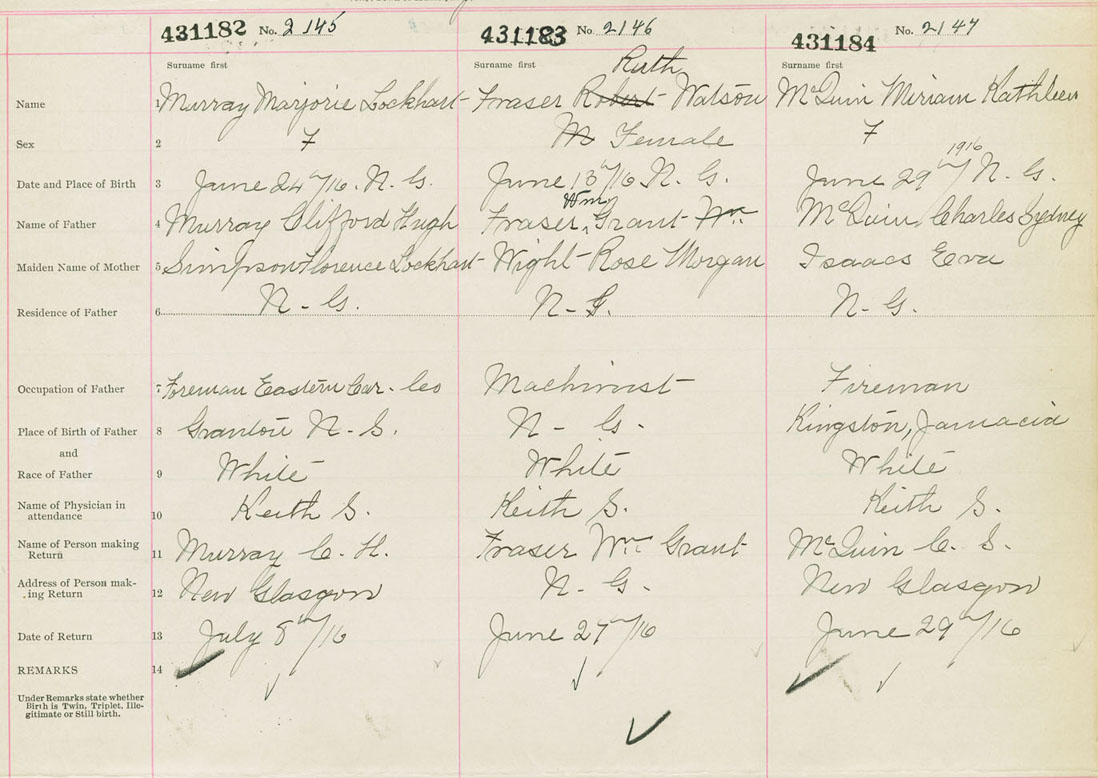 431182 No. 2145 431183 No 2146 431184 No. 2147
Surname first Surname first Ruth Surname first
Name 1 Murray Marjorie Lockhart Fraser Robert Watson McQuin Miriam Kathleen
Sex 2 F M Female F
Date and Place of Birth 3 June 24th/16. N. G. June 13th/16 N. G. June 29th/ 1916 N. G.
Name of Father 4 Murray Clifford Hugh Fraser, Wm. Grant Wm McQuin, Charles Sydney
Maiden Name of Mother 5 Simpson Florence Lockhart Wight Rose Morgan Isaacs Eva
Residence of Father 6 N - G. N - G. N - G.
Occupation of Father 7 Foreman Eastern Car. Co Machinist Fireman
Place of Birth of Father 8 Granton N - S. N - G. Kingston, Jamacia
and
Race of Father 9 White White White
Name of Physician in
attendance 10 Keith S. Keith S. Keith S.
Name of Person making
Return 11 Murray C. H. Fraser Wm Grant McQuin C. S.
Address of Person mak-
ing Return 12 New Glasgow N. G. New Glasgow
Date of Return 13 July 8th/16 June 27th/16 June 29th/16
REMARKS 14
Under Remarks state whether
Birth is Twin, Triplet, Ille-
gitimate or Still birth.